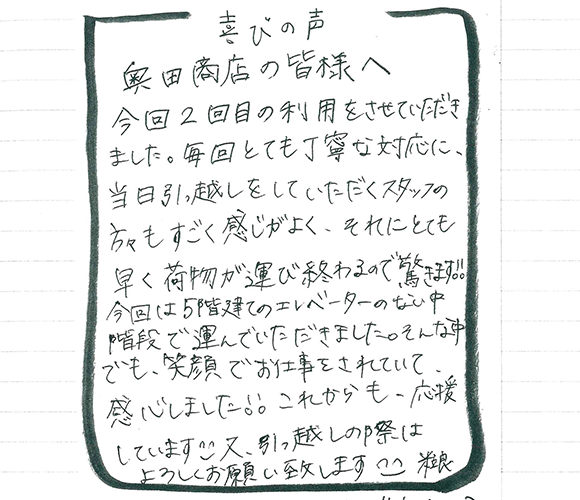 喜びの声
奥田商店の皆様へ
今回2回目の利用をさせていただき
ました。毎回とても丁寧な対応に、
当日引っ越しをしていただくスタッフの
方々もすごく感じがよく、それにとても
早く荷物が運び終わるので驚きます!!
今回は5階建てのエレベーターのない中
階段で運んでいただきました。そんな中
でも、笑顔でお仕事をされていて、
感心しました!! これからも、応援
しています 又、引っ越しの際は
よろしくお願い致します